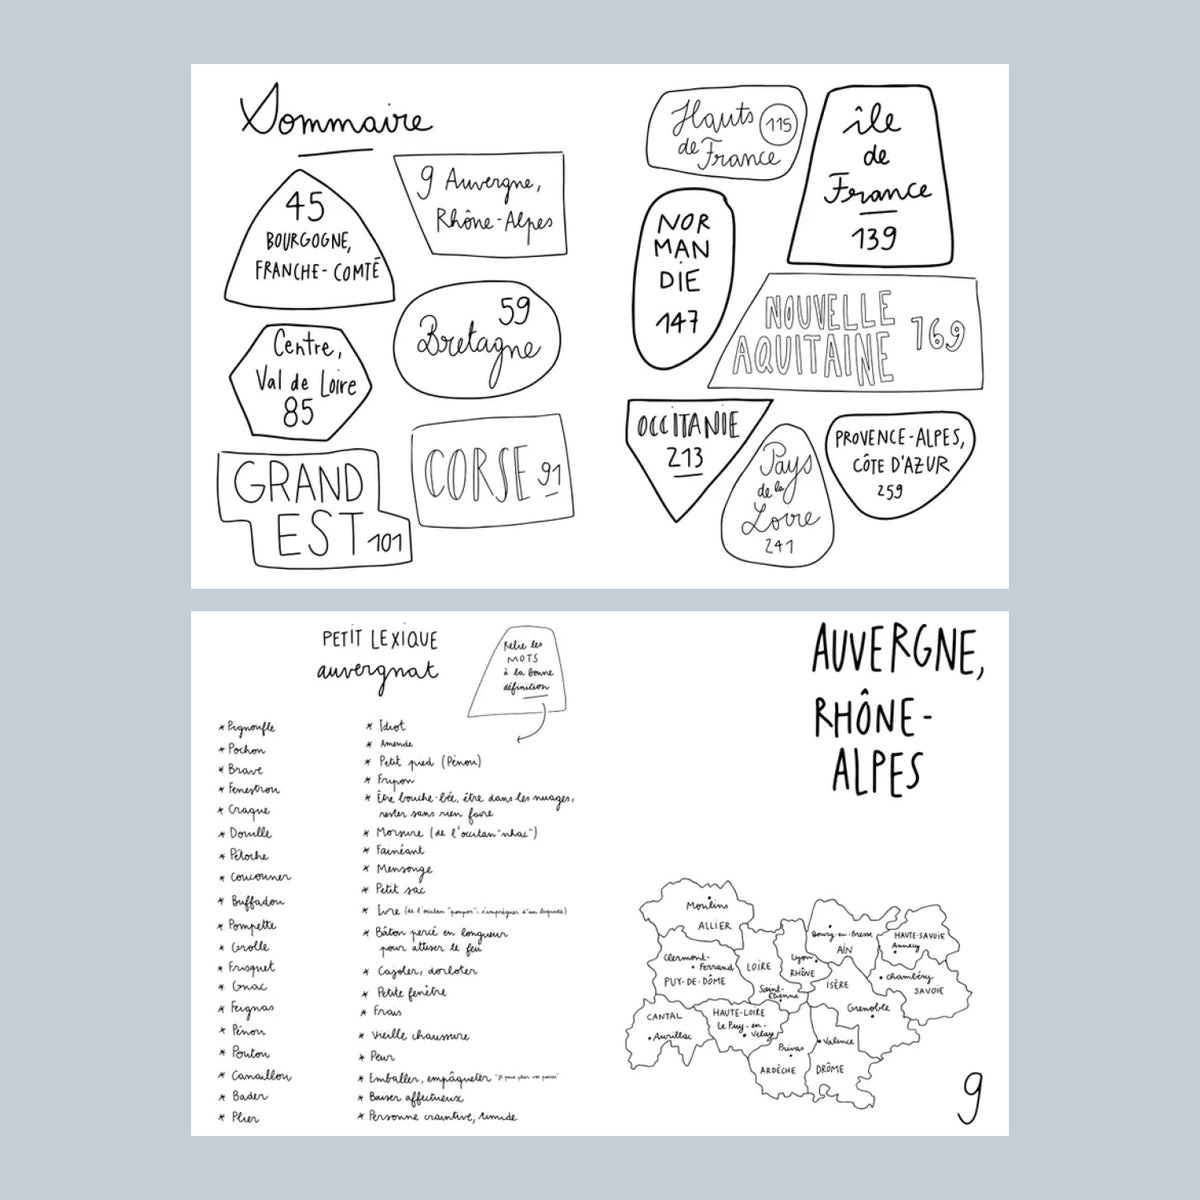 Sommaire
45
BOURGOGNE,
FRANCHE-COMTÉ
9 Auvergne,
Rhône-Alpes
59
Bretagne
Centre,
Val de Loire
85
CORSE 91
GRAND
EST 101
Hauts 115
de France
île
de
France
139
NOR
MAN
DIE
147
NOUVELLE
AQUITAINE 169
OCCITANIE
213
Pays
de la
Loire
241
PROVENCE-ALPES,
CÔTE D'AZUR
259
PETIT LEXIQUE
auvergnat
Relie les
MOTS
à la bonne
définition
* Pignoufle
* Pochon
* Brave
* Fenestrou
* Craque
* Douille
* Pétoche
* Coucouner
* Buffadou
* Pompette
* Grolle
* Frisquet
* Gnac
* Feignas
* Pénou
* Poutou
* Canaillou
* Bader
* Plier
* Idiot
* Amende
* Petit pied (Pénou)
* Fripon
* Être bouche-bée, être dans les nuages,
rester sans rien faire
* Morsure (de l'occitan "nhac")
* Fainéant
* Mensonge
* Petit sac
* Ivre (de l'occitan "pompar": s'imprégner d'un liquide)
* Bâton percé en longueur
pour attiser le feu
* Cajoler, dorloter
* Petite fenêtre
* Frais
* Vieille chaussure
* Peur
* Emballer, empâqueter
* Baiser affectueux
* Personne craintive, timide
AUVERGNE,
RHÔNE-
ALPES
Moulins
ALLIER
Clermont-
Ferrand
PUY-DE-DÔME
LOIRE
Saint-
Étienne
Lyon
RHÔNE
Bourg-en-Bresse
AIN
HAUTE-SAVOIE
Annecy
Chambéry
SAVOIE
ISÈRE
Grenoble
CANTAL
Aurillac
HAUTE-LOIRE
Le Puy-en-
Velay
Privas
ARDÈCHE
Valence
DRÔME
9